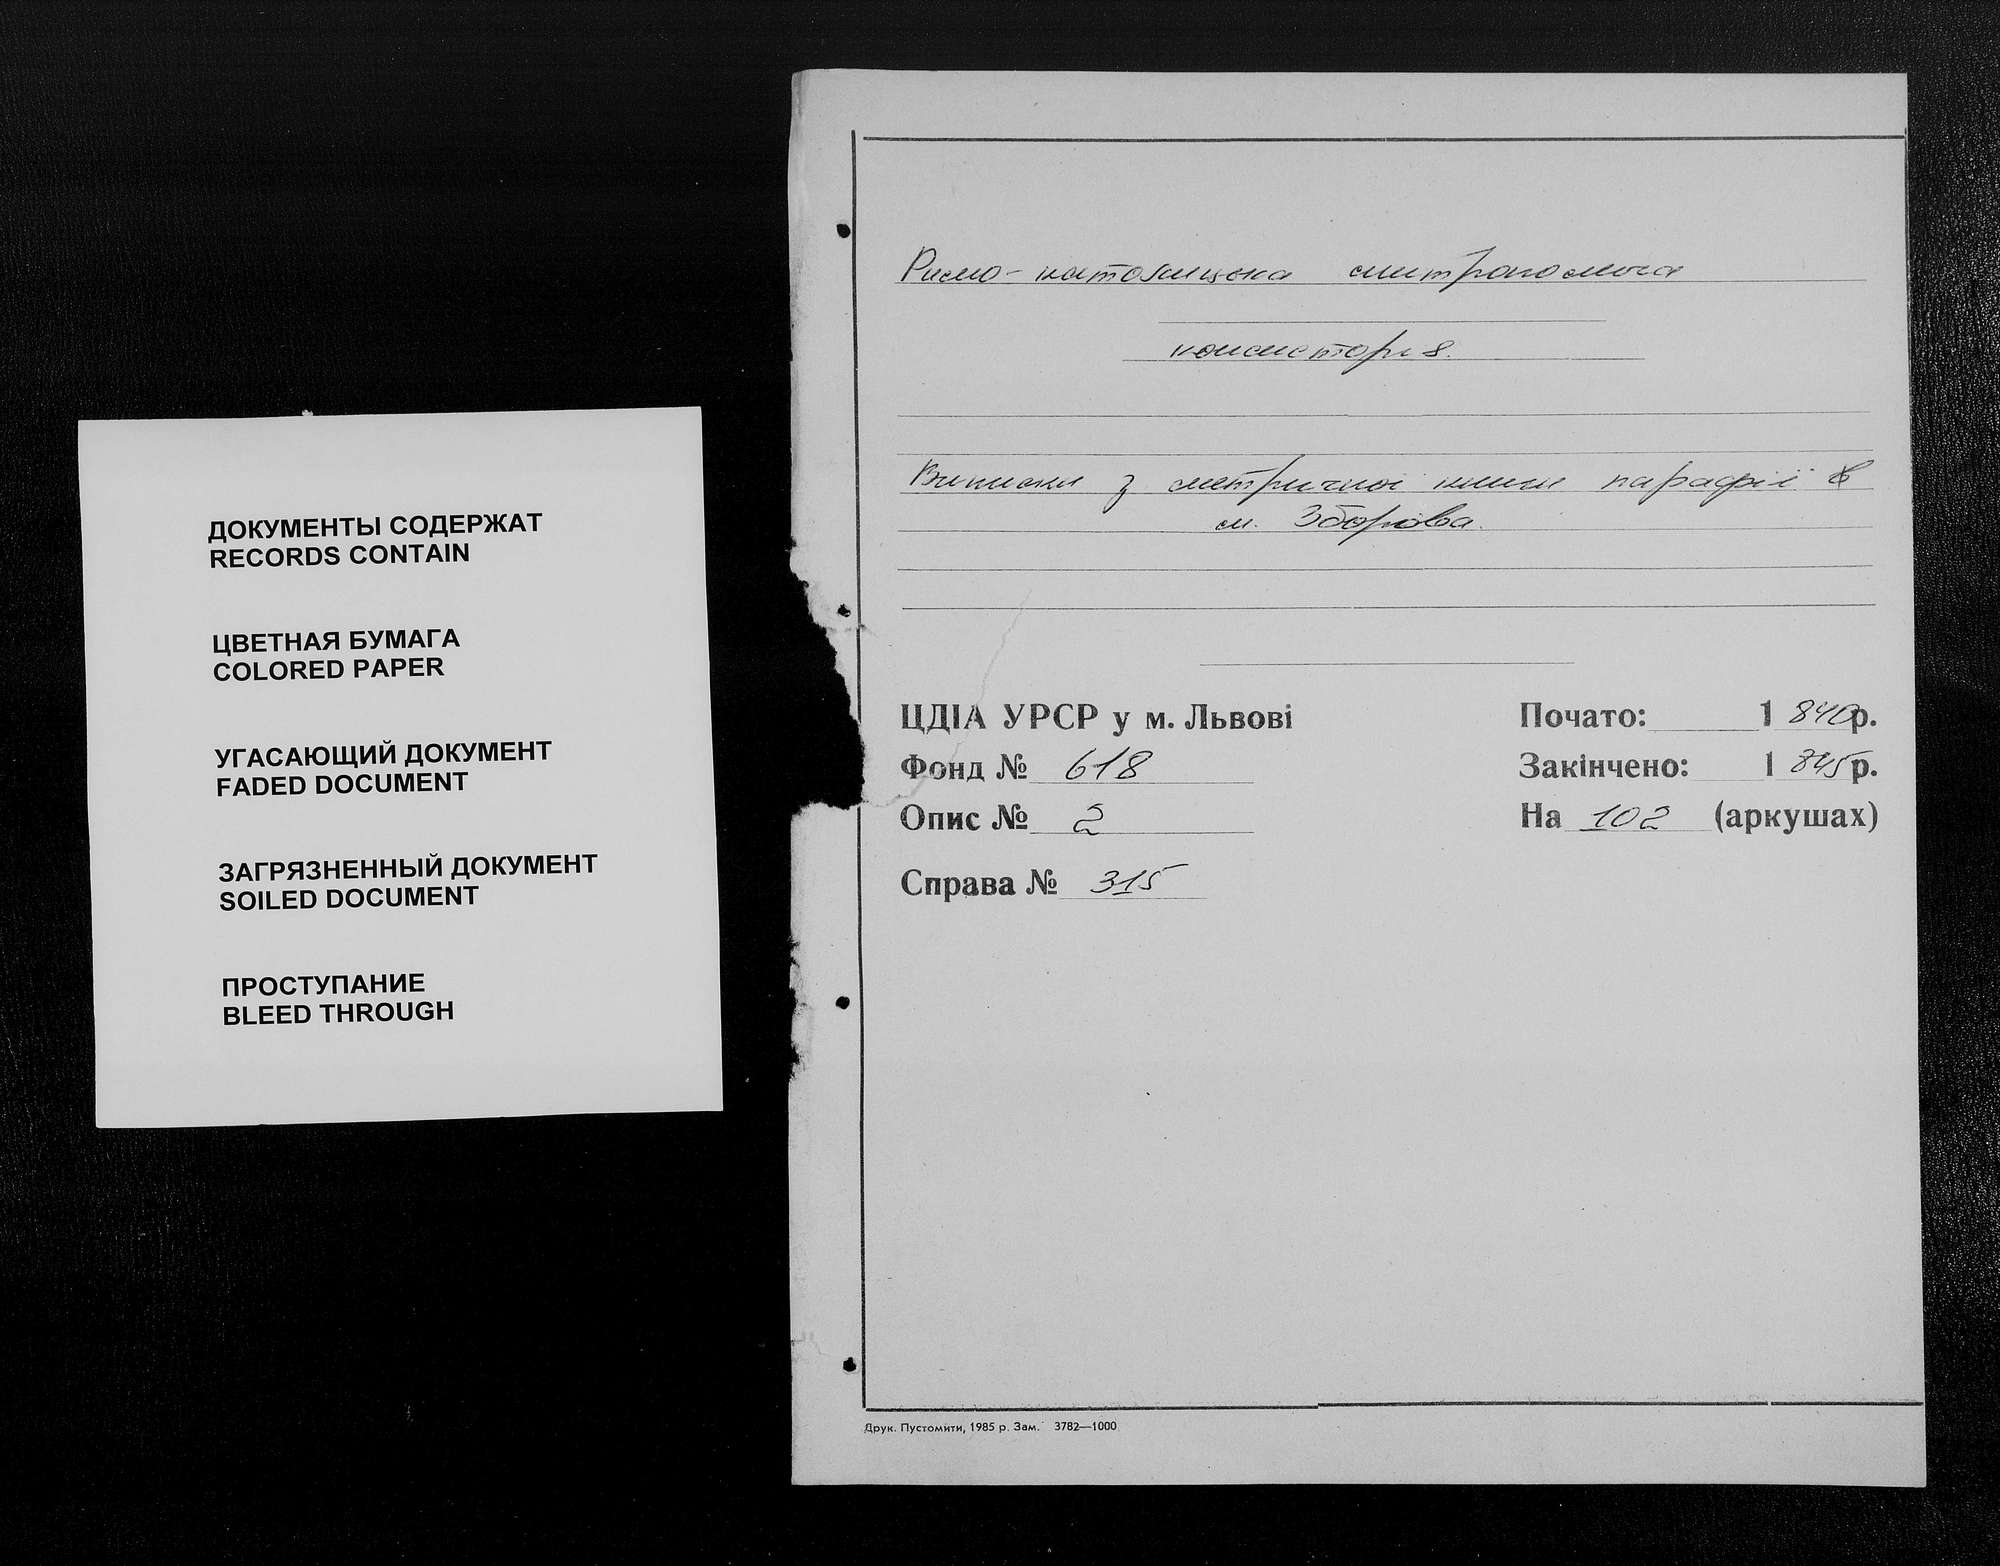 ДОКУМЕНТЫ СОДЕРЖАТ
RECORDS CONTAIN
ЦВЕТНАЯ БУМАГА
COLORED PAPER
УГАСАЮЩИЙ ДОКУМЕНТ
FADED DOCUMENT
ЗАГРЯЗНЕННЫЙ ДОКУМЕНТ
SOILED DOCUMENT
ПРОСТУПАНИЕ
BLEED THROUGH
Римо-католицька митрополича
консисторія.
Виписки з метричної книги парафії
м. Зборова.
ЦДІА УРСР у м. Львові
Почато: 1840р.
Фонд № 618
Закінчено: 1845р.
Опис № 2
На 102 (аркушах)
Справа № 315
Друк. Пустомити, 1985 р. Зам. 3782—1000